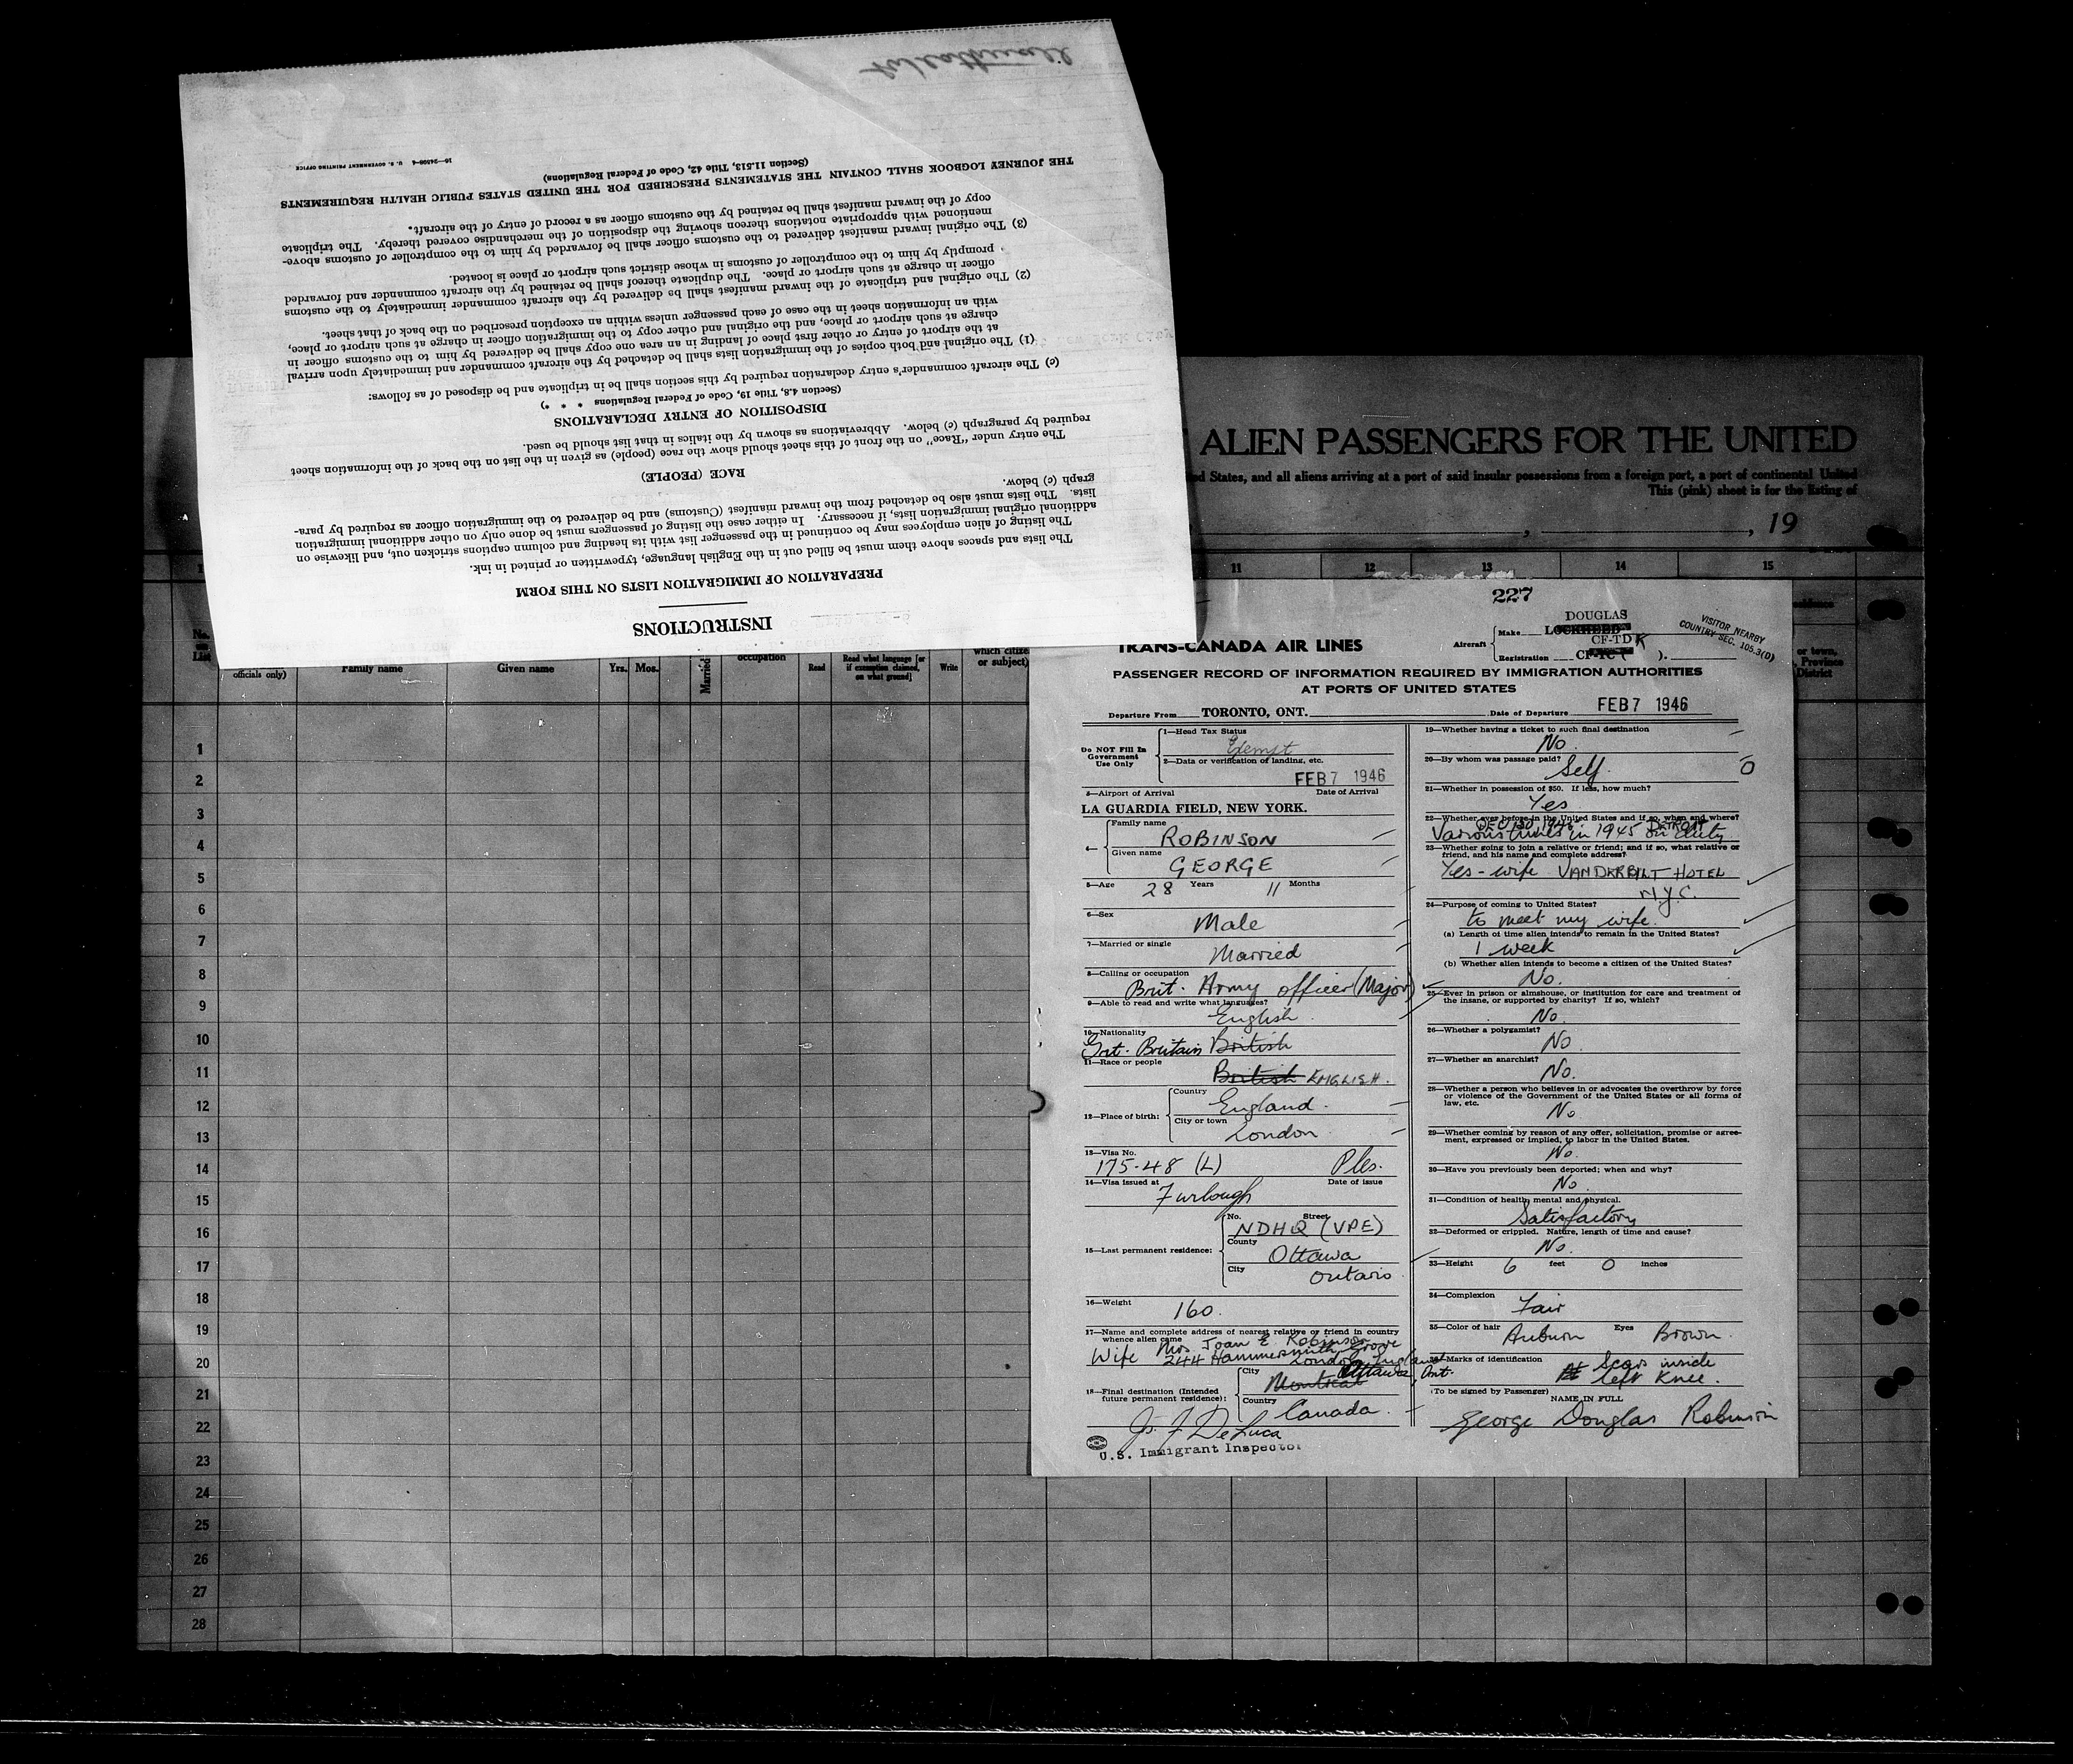 INSTRUCTIONS
PREPARATION OF IMMIGRATION LISTS ON THIS FORM
The lists and spaces above them must be filled out in the English language, typewritten or printed in ink.
The listing of alien employees may be continued in the passenger list with its heading and column captions stricken out, and likewise on
additional original immigration lists, if necessary. In either case the listing of passengers must be done only on other additional immigration
lists. The lists must also be detached from the inward manifest (Customs) and be delivered to the immigration officer as required by para-
graph (c) below.
RACE (PEOPLE)
The entry under "Race" on the front of this sheet should show the race (people) as given in the list on the back of the information sheet
required by paragraph (c) below. Abbreviations as shown by the italics in that list should be used.
DISPOSITION OF ENTRY DECLARATIONS
(Section 4.8, Title 19, Code of Federal Regulations * * *)
(c) The aircraft commander's entry declaration required by this section shall be in triplicate and be disposed of as follows:
(1) The original and both copies of the immigration lists shall be detached by the aircraft commander and immediately upon arrival
at the airport of entry or other first place of landing in an area one copy shall be delivered by him to the customs officer in
charge at such airport or place, and the original and other copy to the immigration officer in charge at such airport or place,
with an information sheet in the case of each passenger unless within an exception prescribed on the back of that sheet.
(2) The original and triplicate of the inward manifest shall be delivered by the aircraft commander immediately to the customs
officer in charge at such airport or place. The duplicate thereof shall be retained by the aircraft commander and forwarded
promptly by him to the comptroller of customs in whose district such airport or place is located.
(3) The original inward manifest delivered to the customs officer shall be forwarded by him to the comptroller of customs above-
mentioned with appropriate notations thereon showing the disposition of the merchandise covered thereby. The triplicate
copy of the inward manifest shall be retained by the customs officer as a record of entry of the aircraft.
THE JOURNEY LOGBOOK SHALL CONTAIN THE STATEMENTS PRESCRIBED FOR THE UNITED STATES PUBLIC HEALTH REQUIREMENTS
(Section 11.513, Title 42, Code of Federal Regulations)
16—24508-4 U. S. GOVERNMENT PRINTING OFFICE
ALIEN PASSENGERS FOR THE UNITED
ed States, and all aliens arriving at a port of said insular possessions from a foreign port, a port of continental United
This (pink) sheet is for the listing of
, , 19
11 12 13 14 15
No. on List
officials only) Family name Given name Yrs. Mos. Married occupation Read Read what language [or if exemption claimed, on what ground] Write which citizen or subject)
or town, Province District
1
2
3
4
5
6
7
8
9
10
11
12
13
14
15
16
17
18
19
20
21
22
23
24
25
26
27
28
227
TRANS-CANADA AIR LINES
Aircraft Make DOUGLAS LOCKHEED
Registration CF-TDK CF-TC ( ).
VISITOR NEARBY
COUNTRY SEC. 105.3(D)
PASSENGER RECORD OF INFORMATION REQUIRED BY IMMIGRATION AUTHORITIES
AT PORTS OF UNITED STATES
Departure From TORONTO, ONT. Date of Departure FEB 7 1946
Do NOT Fill In Government Use Only
1—Head Tax Status
Exempt
2—Data or verification of landing, etc.
FEB 7 1946
3—Airport of Arrival Date of Arrival
LA GUARDIA FIELD, NEW YORK.
4— Family name
ROBINSON
Given name
GEORGE
5—Age 28 Years 11 Months
6—Sex
Male
7—Married or single
Married
8—Calling or occupation
Brit. Army officer (Major)
9—Able to read and write what languages?
English
10—Nationality
Grt. Britain British
11—Race or people
British ENGLISH.
12—Place of birth: Country
England.
City or town
London
13—Visa No.
175-48 (L) Ples.
14—Visa issued at Date of issue
Furlough
15—Last permanent residence: No. Street
NDHQ (VPE)
County
Ottawa
City
Ontario
16—Weight
160.
17—Name and complete address of nearest relative or friend in country
whence alien came
Wife Mrs Joan E Robinson
244 Hammersmith Grove
London, England
18—Final destination (Intended future permanent residence): City
Montreal Ottawa, Ont.
Country
Canada.
Js. F DeLuca
U.S. Immigrant Inspector
19—Whether having a ticket to such final destination
No.
20—By whom was passage paid?
Self.
21—Whether in possession of $50. If less, how much?
Yes
22—Whether ever before in the United States and if so, when and where?
Various times in 1945 on duty DETROIT
23—Whether going to join a relative or friend; and if so, what relative or
friend, and his name and complete address?
Yes - wife VANDERBILT HOTEL
N.Y.C.
24—Purpose of coming to United States?
to meet my wife.
(a) Length of time alien intends to remain in the United States?
1 week
(b) Whether alien intends to become a citizen of the United States?
No.
25—Ever in prison or almshouse, or institution for care and treatment of
the insane, or supported by charity? If so, which?
No.
26—Whether a polygamist?
No.
27—Whether an anarchist?
No.
28—Whether a person who believes in or advocates the overthrow by force
or violence of the Government of the United States or all forms of
law, etc.
No
29—Whether coming by reason of any offer, solicitation, promise or agree-
ment, expressed or implied, to labor in the United States.
No.
30—Have you previously been deported; when and why?
No
31—Condition of health, mental and physical.
Satisfactory
32—Deformed or crippled. Nature, length of time and cause?
No.
33—Height 6 feet 0 inches
34—Complexion
Fair
35—Color of hair Auburn Eyes Brown.
36—Marks of identification
Scars inside
left Knee.
(To be signed by Passenger)
NAME IN FULL
George Douglas Robinson